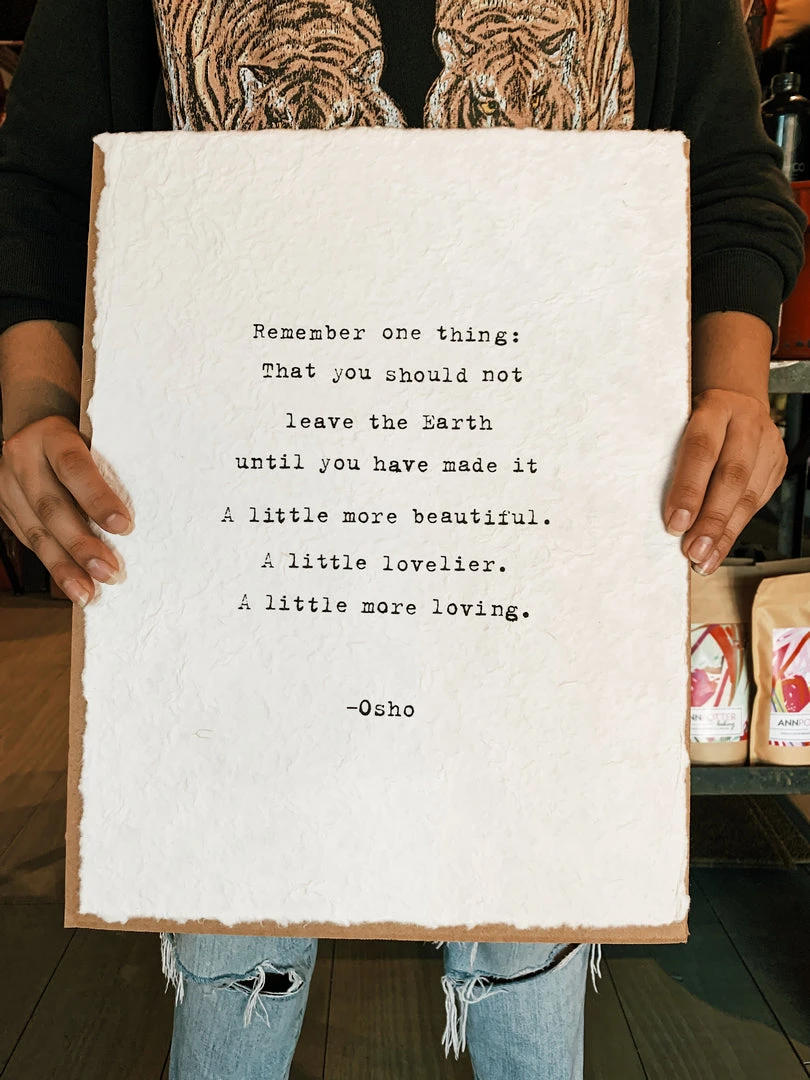 Remember one thing:
That you should not
leave the Earth
until you have made it
A little more beautiful.
A little lovelier.
A little more loving.
-Osho
ANNPOTTER
baking